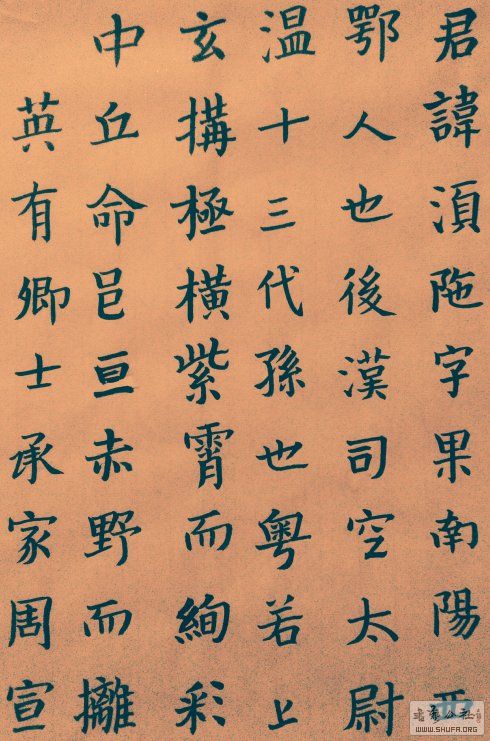 君諱湏陁字果南陽西
鄂人也後漢司空太尉
温十三代孫也粵若上
玄搆極橫紫霄而絢彩
中丘命邑亘赤野而摛
英有卿士承家周宣
WWW.SHUFA.ORG